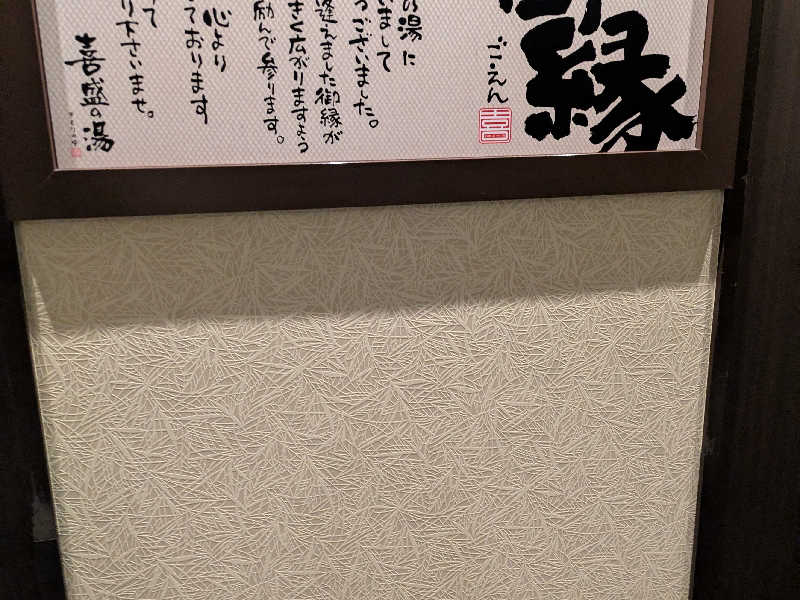 御縁
ご・えん
喜
の湯に
いまして
うございました。
逢えました御縁が
きく広がりますよう
励んで参ります。
心より
ております
って
り下さいませ。
喜盛の湯